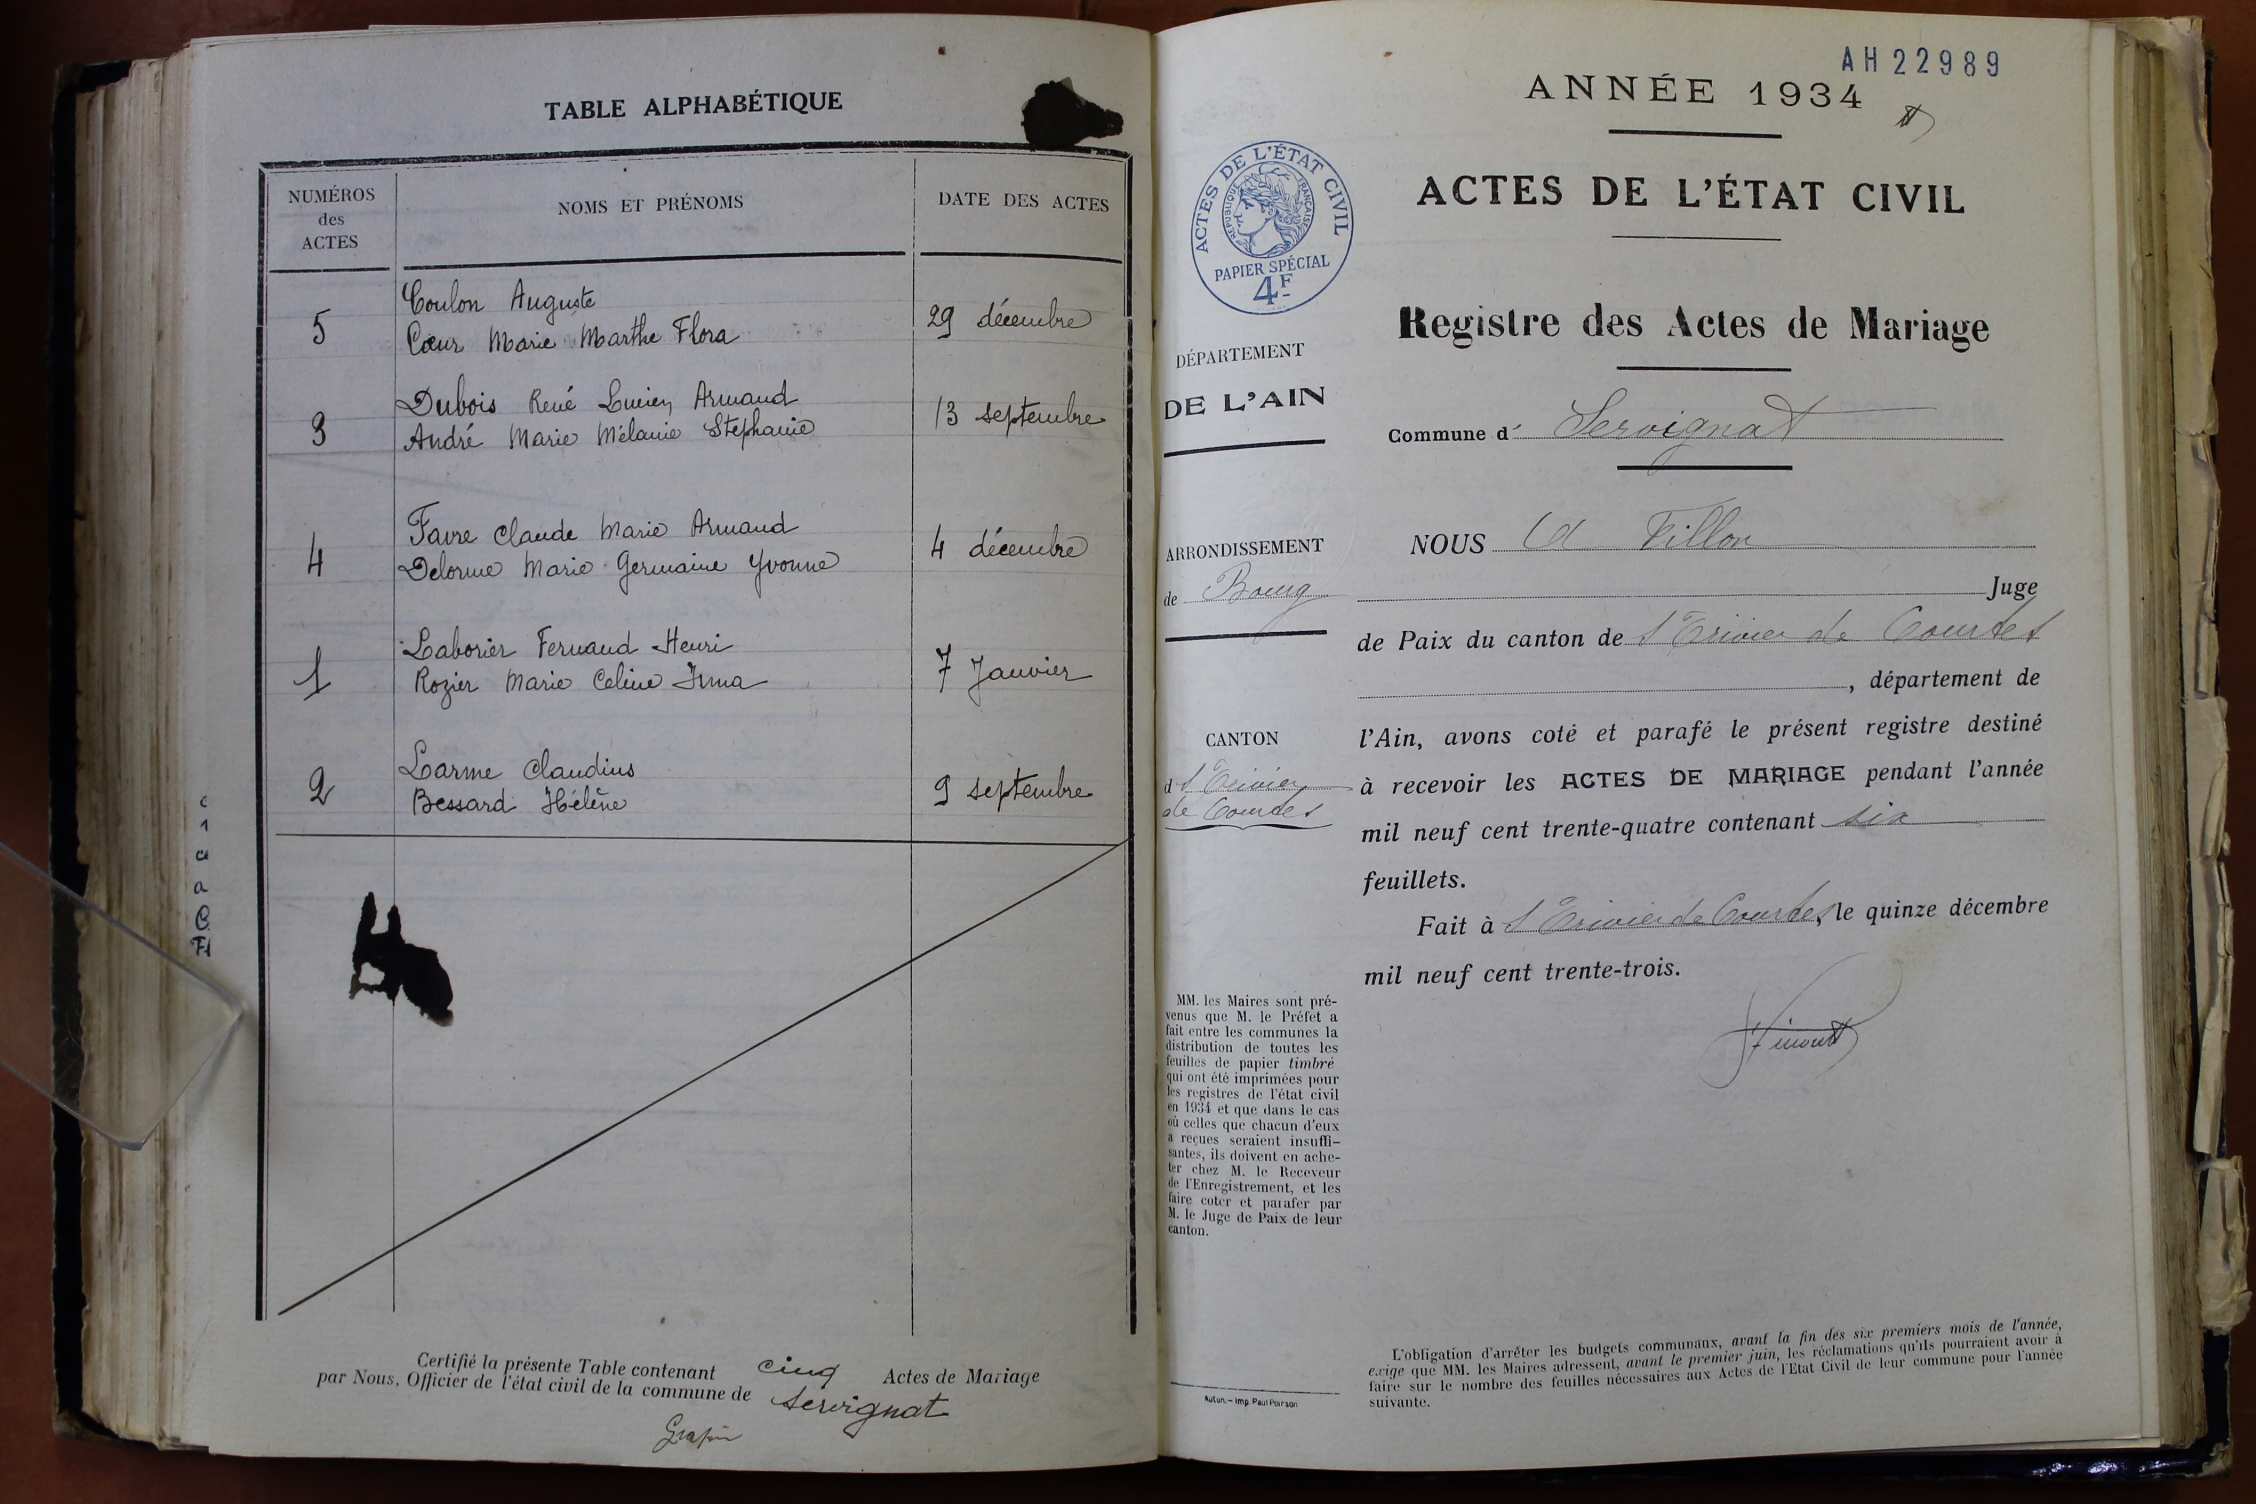 TABLE ALPHABÉTIQUE
NUMÉROS
des
ACTES
NOMS ET PRÉNOMS
DATE DES ACTES
5
Coulon Auguste
Cœur Marie Marthe Flora
29 décembre
3
Dubois René Lucien Armand
André Marie Mélanie Stephanie
13 septembre
4
Favre Claude Marie Armand
Delorme Marie Germaine Yvonne
4 décembre
1
Laborier Fernand Henri
Rozier Marie Celine Irma
7 Janvier
2
Larme Claudius
Bessard Hélène
9 septembre
Certifié la présente Table contenant cinq Actes de Mariage
par Nous, Officier de l'état civil de la commune de Servignat
AH 22989
ANNÉE 1934
ACTES DE L'ÉTAT CIVIL
RÉPUBLIQUE FRANÇAISE
PAPIER SPÉCIAL
4F
ACTES DE L'ÉTAT CIVIL
Registre des Actes de Mariage
DÉPARTEMENT
DE L'AIN
Commune d Servignat
ARRONDISSEMENT
de Bourg
NOUS Fillon
Juge
de Paix du canton de St Trivier de Courtes
, département de
CANTON
d St Trivier
de Courtes
l'Ain, avons coté et parafé le présent registre destiné
à recevoir les ACTES DE MARIAGE pendant l'année
mil neuf cent trente-quatre contenant six
feuillets.
Fait à St Trivier de Courtes, le quinze décembre
mil neuf cent trente-trois.
MM. les Maires sont pré-
venus que M. le Préfet a
fait entre les communes la
distribution de toutes les
feuilles de papier timbré
qui ont été imprimées pour
les registres de l'état civil
en 1934 et que dans le cas
où celles que chacun d'eux
a reçues seraient insuffi-
santes, ils doivent en ache-
ter chez M. le Receveur
de l'Enregistrement, et les
faire coter et parafer par
M. le Juge de Paix de leur
canton.
Autun. - Imp. Paul Poirson
L'obligation d'arrêter les budgets communaux, avant la fin des six premiers mois de l'année,
exige que MM. les Maires adressent, avant le premier juin, les réclamations qu'ils pourraient avoir à
faire sur le nombre des feuilles nécessaires aux Actes de l'Etat Civil de leur commune pour l'année
suivante.